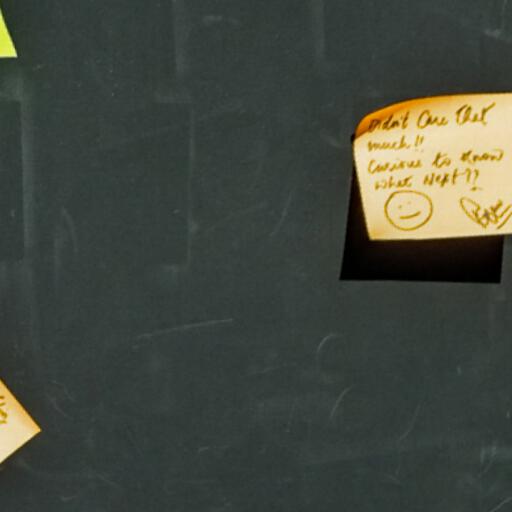 Didn't Care that
much!!
Curious to know
what Next??